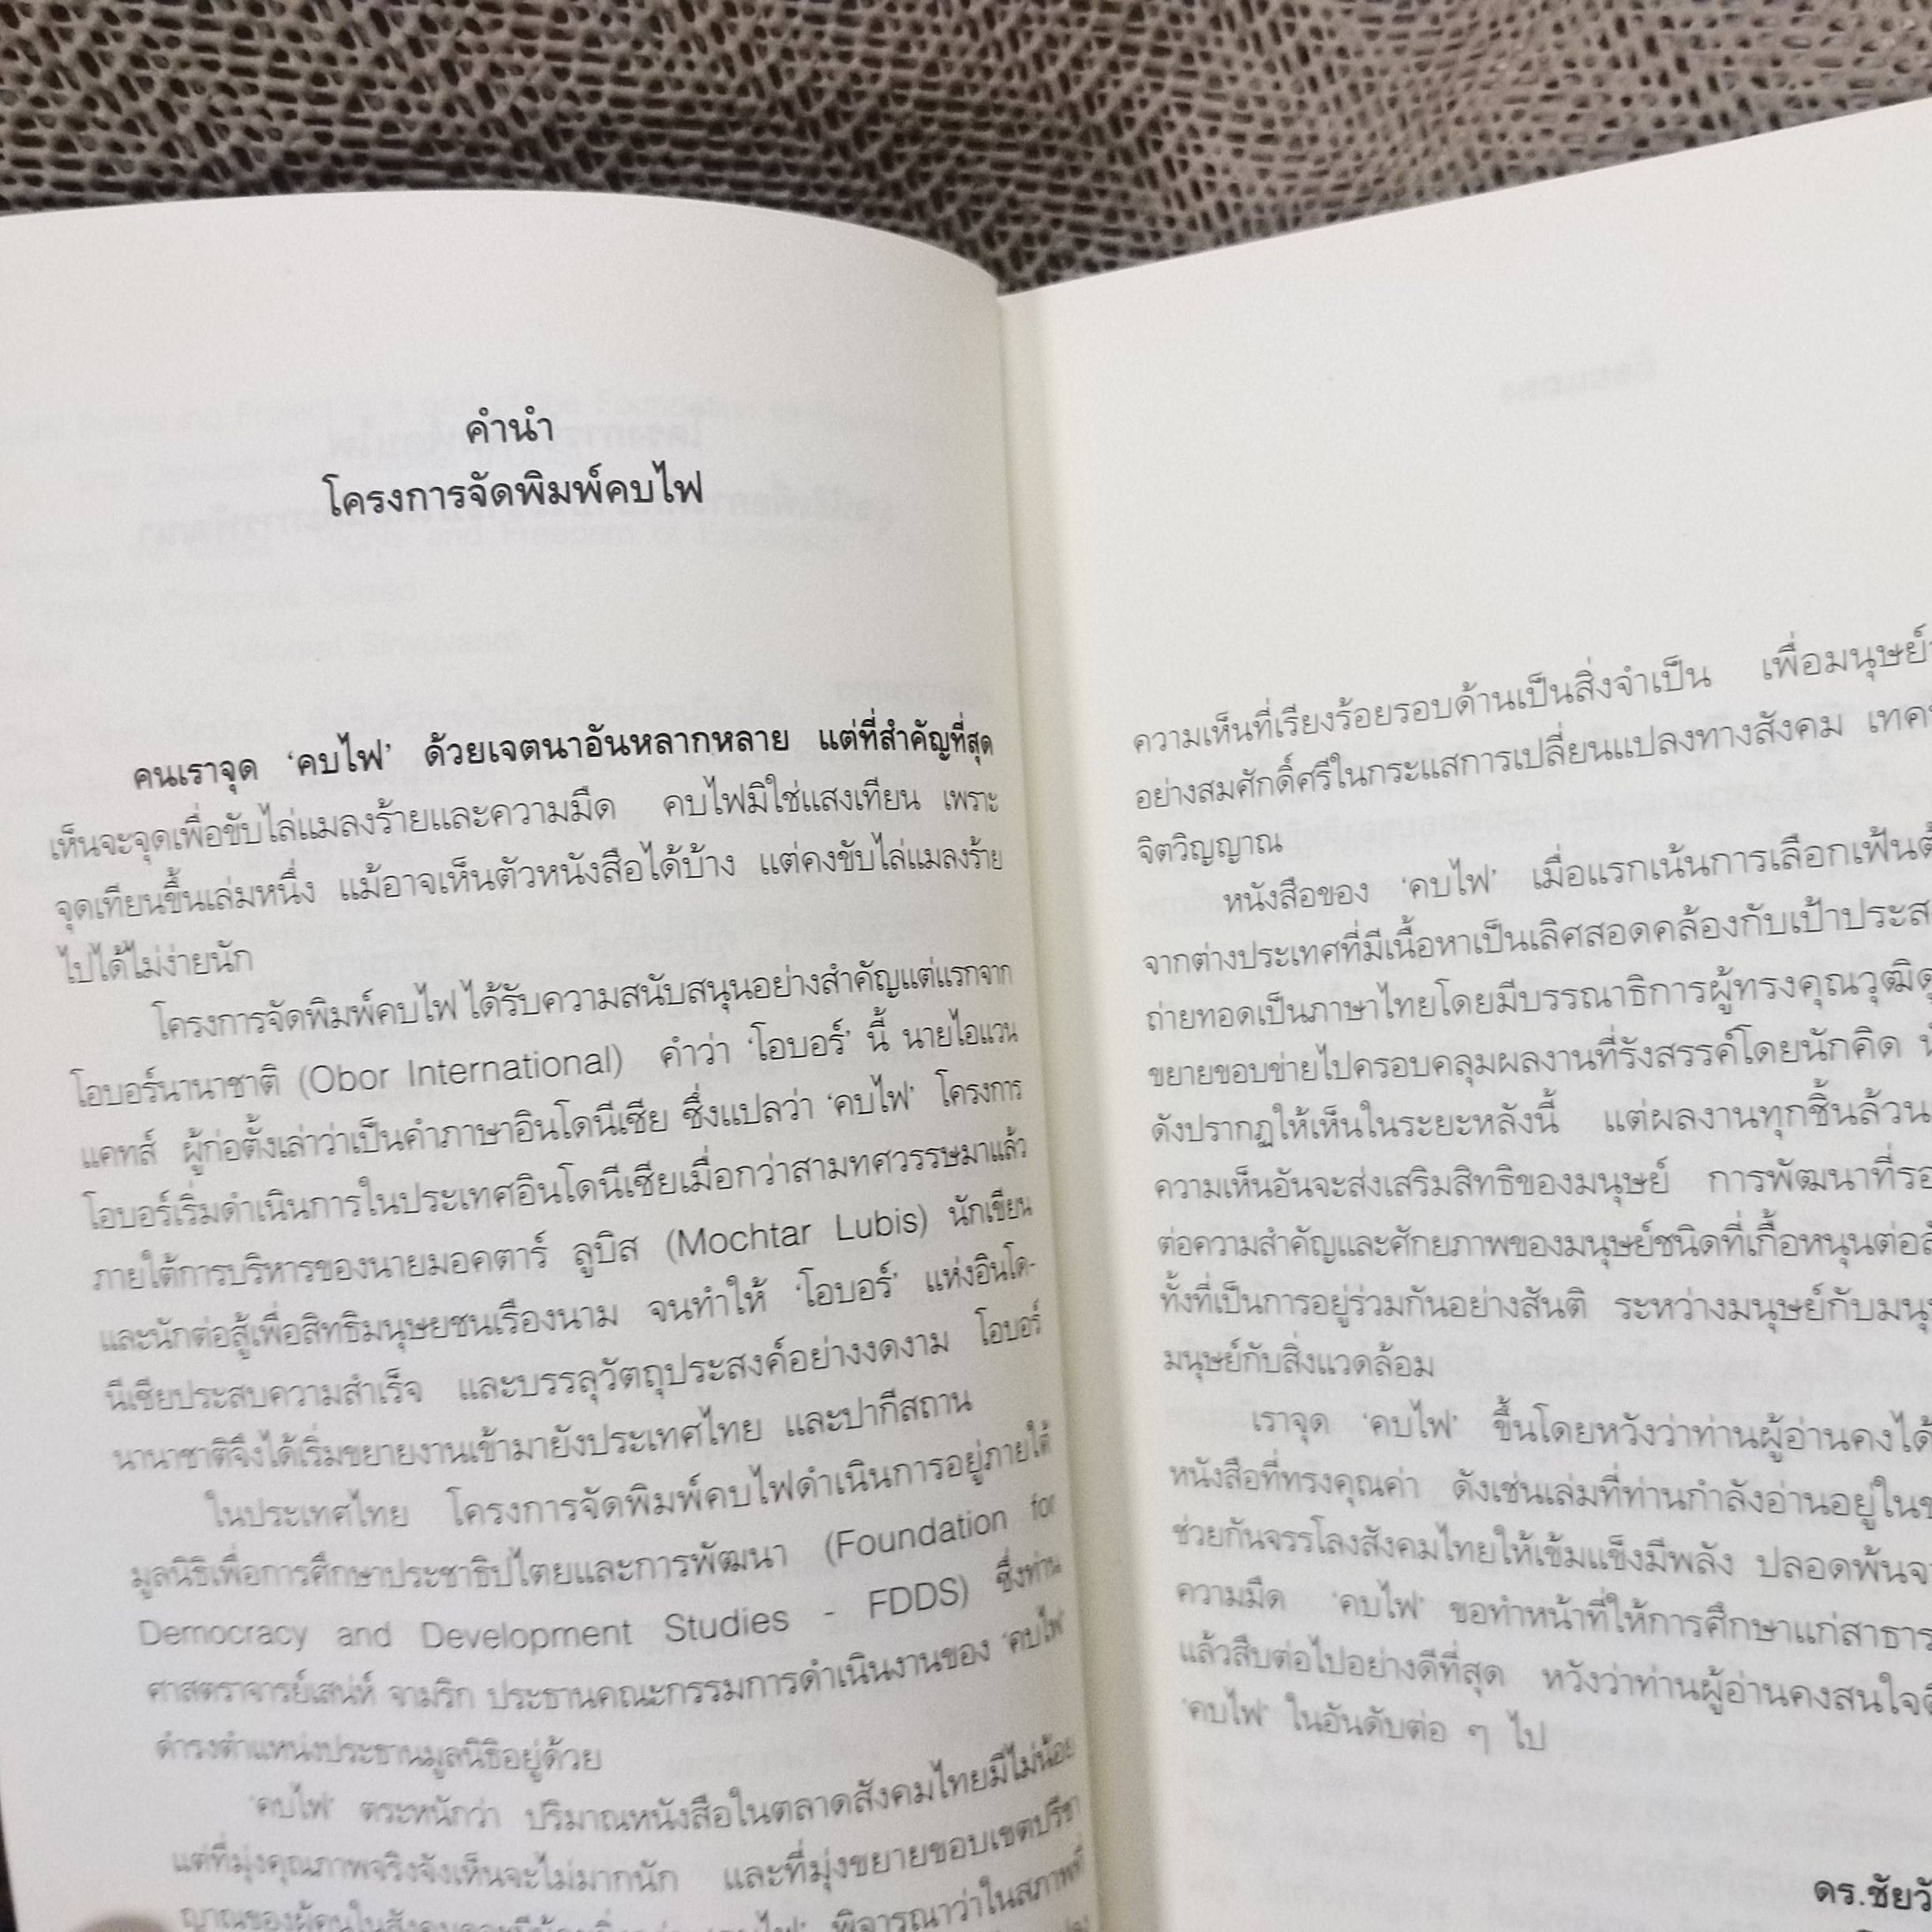 คำนำ
โครงการจัดพิมพ์คบไฟ
คนเราจุด ‘คบไฟ’ ด้วยเจตนาอันหลากหลาย แต่ที่สำคัญที่สุด
เห็นจะจุดเพื่อขับไล่แมลงร้ายและความมืด คบไฟมิใช่แสงเทียน เพราะ
จุดเทียนขึ้นเล่มหนึ่ง แม้อาจเห็นตัวหนังสือได้บ้าง แต่คงขับไล่แมลงร้าย
ไปได้ไม่ง่ายนัก
โครงการจัดพิมพ์คบไฟ ได้รับความสนับสนุนอย่างสำคัญแต่แรกจาก
โอบอร์นานาชาติ (Obor International) คำว่า ‘โอบอร์’ นี้ นายไอแวน
แคทส์ ผู้ก่อตั้งเล่าว่าเป็นคำภาษาอินโดนีเซีย ซึ่งแปลว่า ‘คบไฟ’ โครงการ
โอบอร์เริ่มดำเนินการในประเทศอินโดนีเซียเมื่อกว่าสามทศวรรษมาแล้ว
ภายใต้การบริหารของนายมอคตาร์ ลูบิส (Mochtar Lubis) นักเขียน
และนักต่อสู้เพื่อสิทธิมนุษยชนเรืองนาม จนทำให้ ‘โอบอร์’ แห่งอินโด-
นีเซียประสบความสำเร็จ และบรรลุวัตถุประสงค์อย่างงดงาม โอบอร์
นานาชาติจึงได้เริ่มขยายงานเข้ามายังประเทศไทย และปากีสถาน
ในประเทศไทย โครงการจัดพิมพ์คบไฟดำเนินการอยู่ภายใต้
มูลนิธิเพื่อการศึกษาประชาธิปไตยและการพัฒนา (Foundation for
Democracy and Development Studies - FDDS) ซึ่งท่าน
ศาสตราจารย์เสน่ห์ จามริก ประธานคณะกรรมการดำเนินงานของ ‘คบไฟ’
ดำรงตำแหน่งประธานมูลนิธิอยู่ด้วย
‘คบไฟ’ ตระหนักว่า ปริมาณหนังสือในตลาดสังคมไทยมีไม่น้อย
แต่ที่มุ่งคุณภาพจริงจังเห็นจะไม่มากนัก และที่มุ่งขยายขอบเขตปรีชา
ญาณของผู้คนในสังคม พิจารณาว่าในสภาพที่
ความเห็นที่เรียงร้อยรอบด้านเป็นสิ่งจำเป็น เพื่อมนุษย์
อย่างสมศักดิ์ศรีในกระแสการเปลี่ยนแปลงทางสังคม
จิตวิญญาณ
หนังสือของ ‘คบไฟ’ เมื่อแรกเน้นการเลือกเฟ้น
จากต่างประเทศที่มีเนื้อหาเป็นเลิศสอดคล้องกับเป้าประส
ถ่ายทอดเป็นภาษาไทยโดยมีบรรณาธิการผู้ทรงคุณวุฒิ
ขยายขอบข่ายไปครอบคลุมผลงานที่รังสรรค์โดยนักคิด
ดังปรากฏให้เห็นในระยะหลังนี้ แต่ผลงานทุกชิ้นล้วน
ความเห็นอันจะส่งเสริมสิทธิของมนุษย์ การพัฒนาที่รอ
ต่อความสำคัญและศักยภาพของมนุษย์ชนิดที่เกื้อหนุนต่อ
ทั้งที่เป็นการอยู่ร่วมกันอย่างสันติ ระหว่างมนุษย์กับมนุ
มนุษย์กับสิ่งแวดล้อม
เราจุด ‘คบไฟ’ ขึ้นโดยหวังว่าท่านผู้อ่านคงได้
หนังสือที่ทรงคุณค่า ดังเช่นเล่มที่ท่านกำลังอ่านอยู่ใน
ช่วยกันจรรโลงสังคมไทยให้เข้มแข็งมีพลัง ปลอดพ้นจา
ความมืด ‘คบไฟ’ ขอทำหน้าที่ให้การศึกษาแก่สาธาร
แล้วสืบต่อไปอย่างดีที่สุด หวังว่าท่านผู้อ่านคงสนใจ
‘คบไฟ’ ในอันดับต่อ ๆ ไป
ดร.ชัยวั